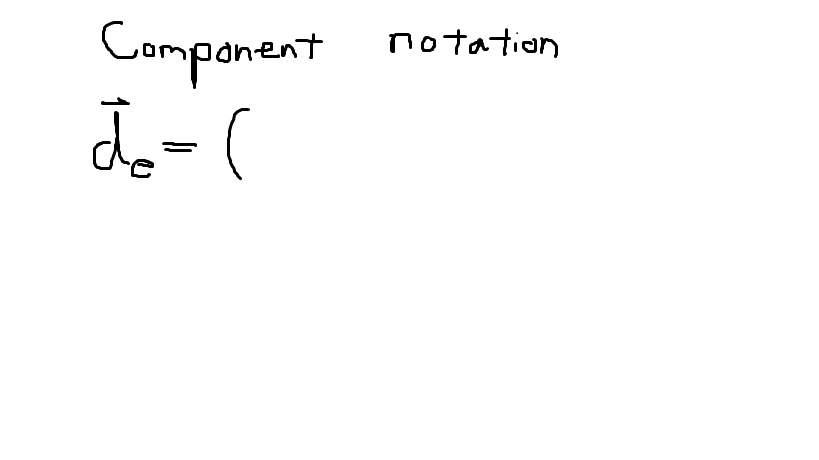 Component notation
d⃗e = (